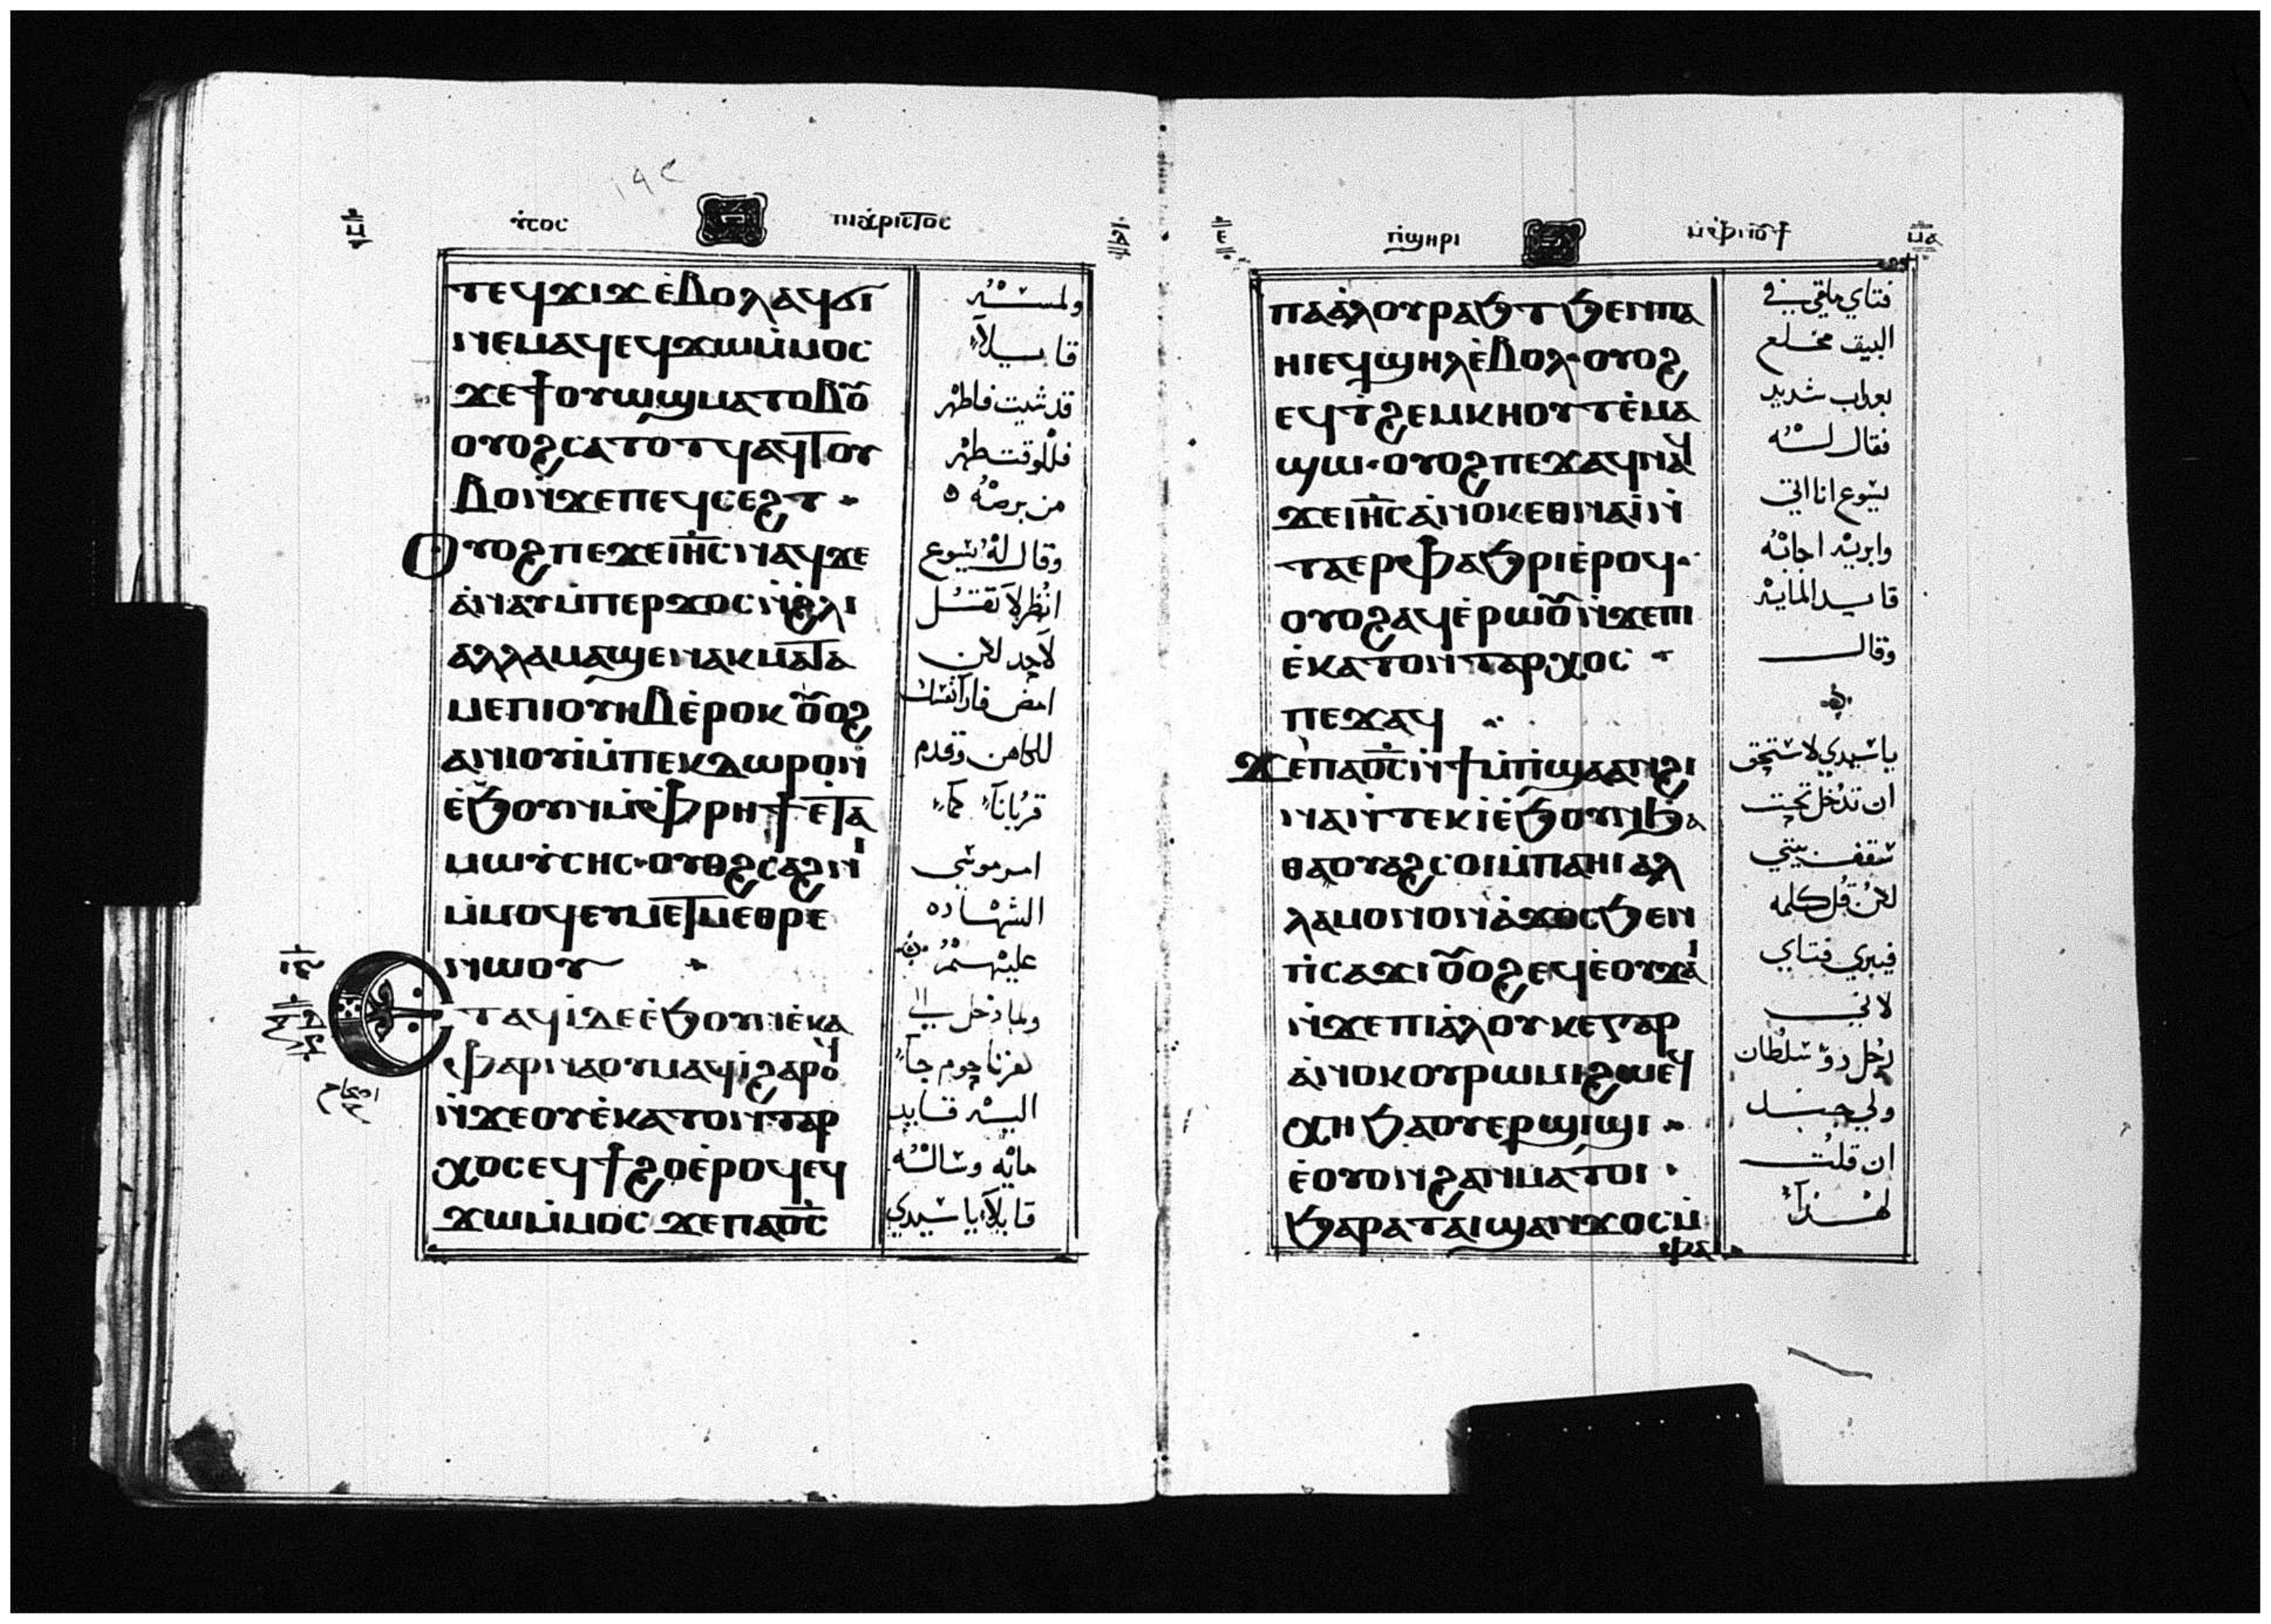 ⲓⲏ̅ⲥ̅ ⲡⲓⲭⲣⲓⲥⲧⲟⲥ
ⲧⲉϥϫⲓϫ ⲉ̀ⲃⲟⲗ ⲁϥϭⲓ
ⲛⲉⲙⲁϥ ⲉϥϫⲱ ⲙ̀ⲙⲟⲥ
ϫⲉ ϯⲟⲩⲱϣ ⲙⲁⲧⲟⲩⲃⲟ
ⲟⲩⲟϩ ⲥⲁⲧⲟⲧϥ ⲁϥⲧⲟⲩ
ⲃⲟ ⲛ̀ϫⲉ ⲡⲉϥⲥⲉϩⲧ
ⲟⲩⲟϩ ⲡⲉϫⲉ ⲓⲏ̅ⲥ̅ ⲛⲁϥ ϫⲉ
ⲁ̀ⲛⲁⲩ ⲙ̀ⲡⲉⲣϫⲟⲥ ⲛ̀ϩⲗⲓ
ⲁⲗⲗⲁ ⲙⲁϣⲉⲛⲁⲕ ⲙⲁⲧⲁ
ⲙⲉ ⲡⲓⲟⲩⲏⲃ ⲉ̀ⲣⲟⲕ ⲟⲩⲟϩ
ⲁⲛⲓⲟⲩⲓ̀ ⲙ̀ⲡⲉⲕⲇⲱⲣⲟⲛ
ⲉ̀ϧⲟⲩⲛ ⲙ̀ⲫⲣⲏϯ ⲉⲧⲁ
ⲙⲱⲩ̀ⲥⲏⲥ ⲟⲩⲁϩⲥⲁϩⲛⲓ
ⲙ̀ⲙⲟϥ ⲉⲩⲙⲉⲧⲙⲉⲑⲣⲉ
ⲛⲱⲟⲩ
ⲉⲧⲁϥⲓ̀ ⲇⲉ ⲉ̀ϧⲟⲩⲛ ⲉ̀ⲕⲁ
ⲫⲁⲣⲛⲁⲟⲩⲙ ⲁϥⲓ̀ ϩⲁⲣⲟϥ
ⲛ̀ϫⲉ ⲟⲩⲉ̀ⲕⲁⲧⲟⲛⲧⲁⲣ
ⲭⲟⲥ ⲉϥϯϩⲟ ⲉ̀ⲣⲟϥ ⲉϥ
ϫⲱ ⲙ̀ⲙⲟⲥ ϫⲉ ⲡⲁⲟ̅ⲥ̅
ولمسه
قايلاً
قد شيت فاطهر
فللوقت طهر
من برصه
وقال له يسوع
انظر لا تقل
لاحد لاكن
امض فارا نفسك
للكاهن وقدم
قرباناً كما
امر موسي
الشهاده
عليهم
ولما دخل الي
كفرناحوم جآ
اليه قايد
مايه وساله
قايلاً يا سيدي
ⲡ̀ϣⲏⲣⲓ ⲙ̀ⲫⲛⲟⲩϯ
ⲡⲁⲁ̀ⲗⲟⲩ ⲣⲁϧⲧ ϧⲉⲛ ⲡⲁ
ⲏⲓ ⲉϥϣⲏⲗ ⲉ̀ⲃⲟⲗ ⲟⲩⲟϩ
ⲉϥⲧ̀ϩⲉⲙⲕⲏⲟⲩⲧ ⲉ̀ⲙⲁ
ϣⲱ ⲟⲩⲟϩ ⲡⲉϫⲁϥ ⲛⲁϥ
ϫⲉ ⲓⲏ̅ⲥ̅ ⲁ̀ⲛⲟⲕ ⲉⲑⲛⲁⲓ̀ ⲛ̀
ⲧⲁⲉⲣⲫⲁϧⲣⲓ ⲉ̀ⲣⲟϥ
ⲟⲩⲟϩ ⲁϥⲉ̀ⲣⲱⲟⲩ ⲛ̀ϫⲉ ⲡⲓ
ⲉ̀ⲕⲁⲧⲟⲛⲧⲁⲣⲭⲟⲥ
ⲡⲉϫⲁϥ
ϫⲉ ⲡⲁⲟ̅ⲥ̅ ⲛ̀ϯⲙ̀ⲡϣⲁ ⲁⲛ ϩⲓ
ⲛⲁ ⲛ̀ⲧⲉⲕⲓ̀ ⲉ̀ϧⲟⲩⲛ ϧⲁ
ⲑⲁⲟⲩⲁϩⲥⲟⲓ ⲙ̀ⲡⲁⲏⲓ ⲁⲗ
ⲗⲁ ⲙⲟⲛⲟⲛ ⲁ̀ϫⲟⲥ ϧⲉⲛ
ⲡ̀ⲥⲁϫⲓ ⲟⲩⲟϩ ⲉϥⲉ̀ⲟⲩϫⲁⲓ
ⲛ̀ϫⲉ ⲡⲁⲁ̀ⲗⲟⲩ ⲕⲉ ⲅⲁⲣ
ⲁ̀ⲛⲟⲕ ⲟⲩⲣⲱⲙⲓ ϩⲱ ⲉϥ
ⲭⲏ ϧⲁ ⲟⲩⲉⲣϣⲓϣⲓ
ⲉ̀ⲟⲩⲟⲛ ϩⲁⲛⲙⲁⲧⲟⲓ
ϧⲁⲣⲁⲧ ⲁⲓϣⲁⲛϫⲟⲥ ⲙ̀
ⲫⲁⲓ
فتاي ملقي في
البيت مخلع
بعداب شديد
فقال له
يسوع انا اتي
وابريه اجابه
قايد المايه
وقال
يا سيدي لا استحق
ان تدخل تحت
سقف بيتي
لاكن قل كلمه
فيبري فتاي
لاني
رجل دو سلطان
ولي جند
ان قلت
لهذا